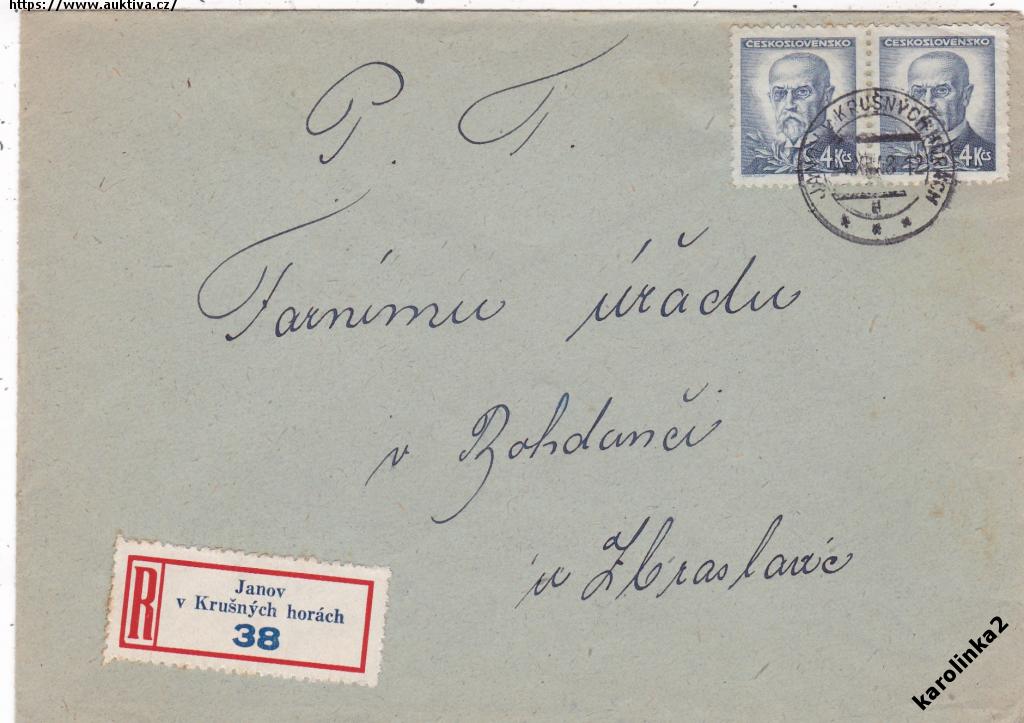 https://www.auktiva.cz/
ČESKOSLOVENSKO ČESKOSLOVENSKO
4 Kčs 4 Kčs
JANOV V KRUŠNÝCH HORÁCH
12
a
P. T.
Farnímu úřadu
v Bohdanči
u Zbraslavic
R
Janov
v Krušných horách
38
karolinka2